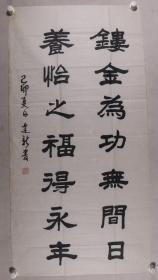 鏤金為功無間日
養怡之福得永年
己卯夏月 建新書